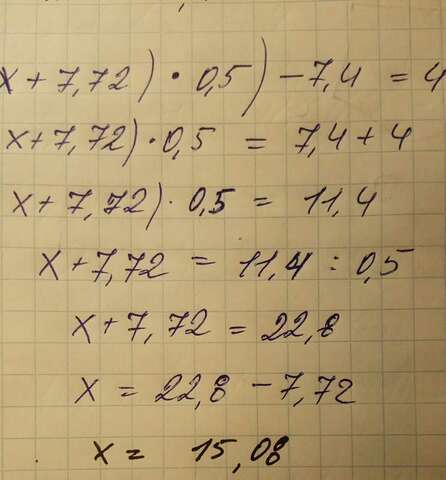 x + 7,72) · 0,5) - 7,4 = 4
x + 7,72) · 0,5 = 7,4 + 4
x + 7,72) · 0,5 = 11,4
x + 7,72 = 11,4 : 0,5
x + 7,72 = 22,8
x = 22,8 - 7,72
x = 15,08